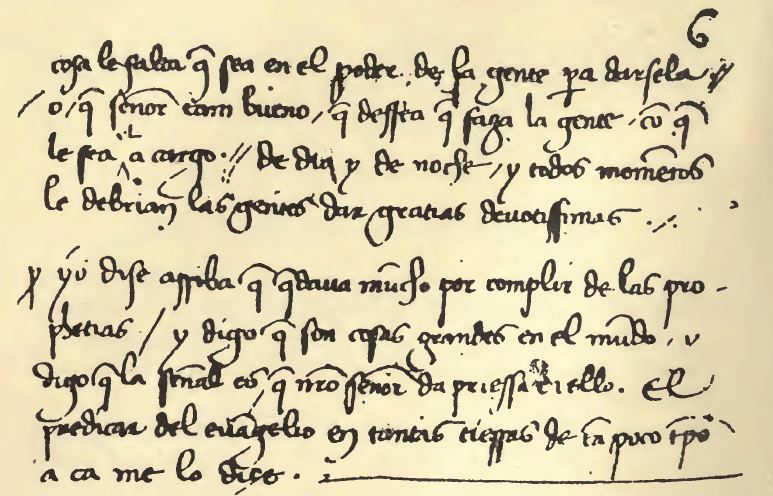 6
cosa le falta q̄ sea en el poder de la gente pa darsela //
/ o q̄ señor tam bueno / q̄ dessea q̄ faga la gente cō q̄
le sea a cargo // de dia y de noche / y todos momētos
le debrian las gentes dar gratias devotissimas //.
yo dise arriba q̄ q̄dava mucho por complir de las pro-
phetias / y digo q̄ son cosas grandes en el mūdo / y
digo q̄ la señal es q̄ nr̄o señor da priessa ello. El
predicar del evāgelio en tantas tierras de tā poco tp̄o
a ca me lo dice.